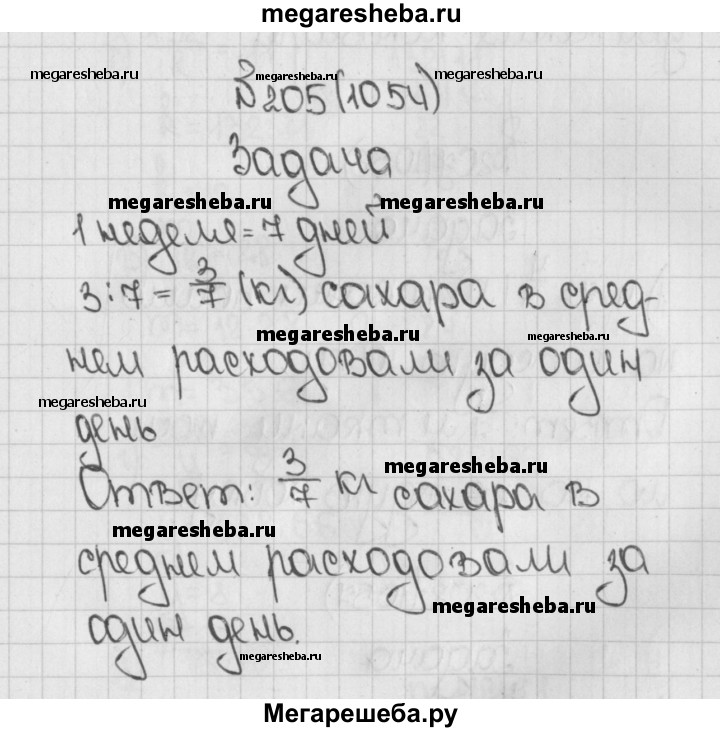 megaresheba.ru
megaresheba.ru №205(1054) megaresheba.ru
Задача
megaresheba.ru megaresheba.ru
1 неделя = 7 дней
3:7 = 3/7 (кг) сахара в сред-
megaresheba.ru megaresheba.ru
нем расходовали за один
megaresheba.ru
день
megaresheba.ru
Ответ: 3/7 кг сахара в
megaresheba.ru
среднем расходовали за
megaresheba.ru
один день.
megaresheba.ru
Мегарешеба.ру